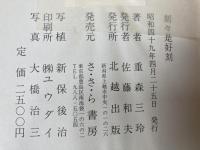 刻々是好刻
昭和四十九年四月二十五日 発行
著者 重森三玲
発行者 佐藤和夫
発行所 北越出版
発売元 さ・さ・ら書房
写植 新保後治
印刷所 ㈱ユウダイ
写真 大橋治三
定価 二五〇〇円